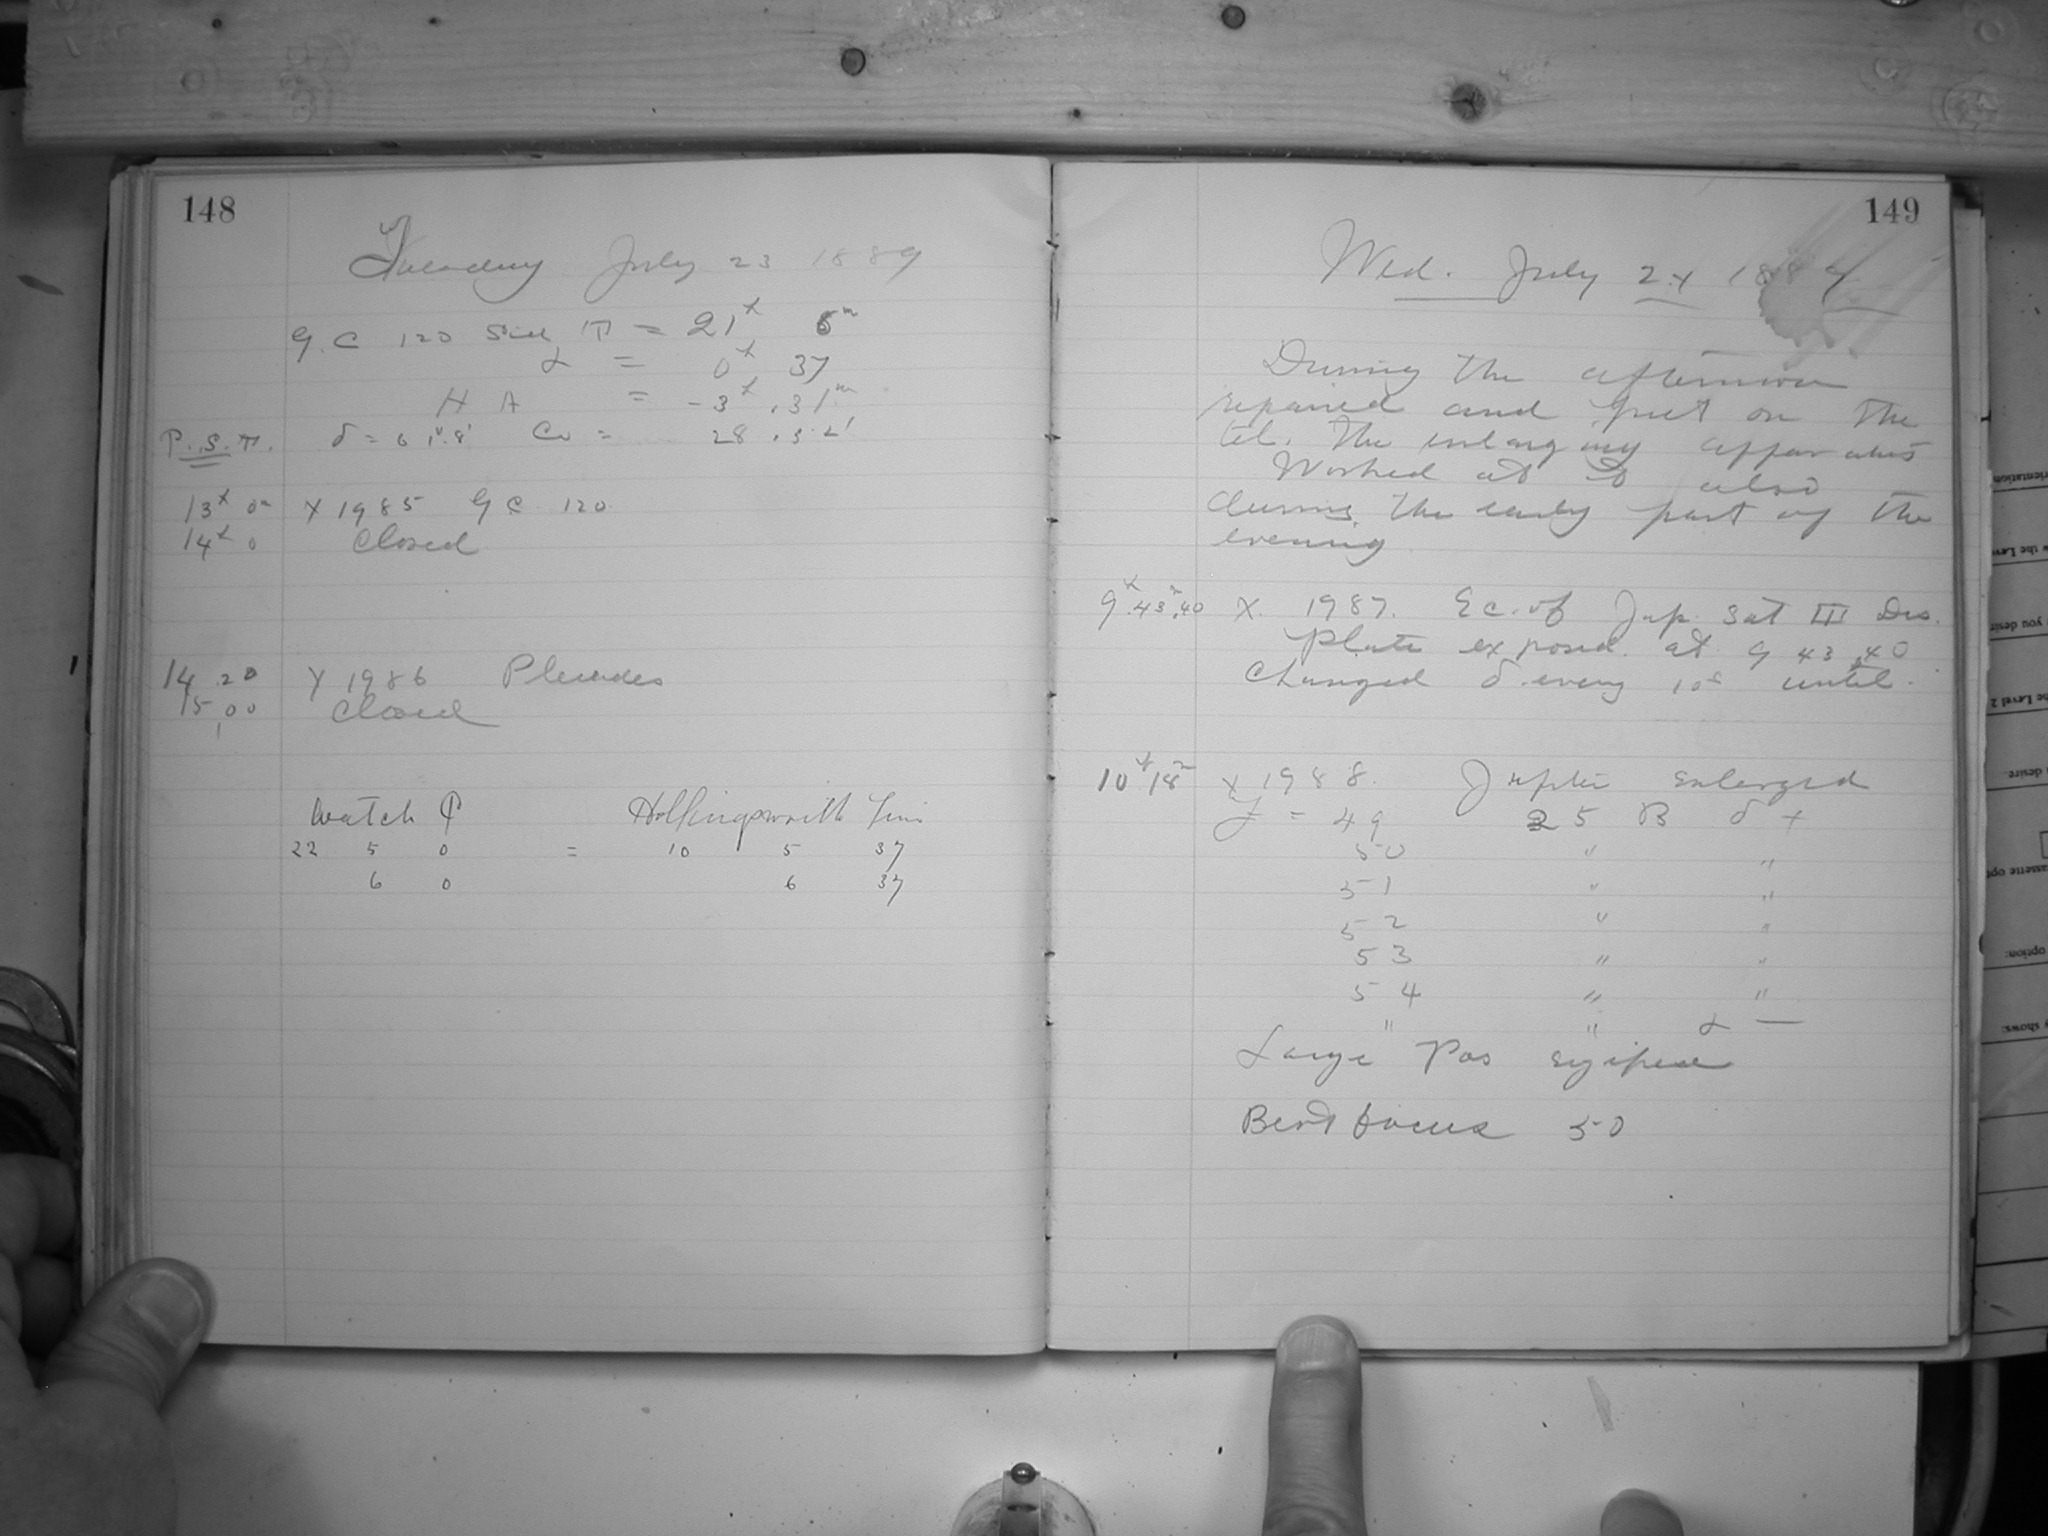 148
Tuesday July 23 1889
G.C 120 Sid T = 21h 6m
α = 0h 37
H A = -3h .31m
P.S.T. δ = 61°.8' Co = 28
13h 0m X 1985 G C 120
14h 0 Closed
14 20 Y 1986 Pleiades
15 00 Closed
Watch P Hollingsworth Time
22 5 0 = 10 5 37
6 0 6 37
149
Wed. July 24 1889
During the afternoon
repaired and put on the
tel. the enlarging apparatus
Worked at it also
during the early part of the
evening
9h.43m.40 X. 1987. Ec. of Jup. Sat III Dis.
Plate exposed at 9 43 40
Changed δ every 10s until.
10h 18m X 1988. Jupiter enlarged
F = 49 25 B δ +
50 " "
51 " "
52 " "
53 " "
54 " "
" " α —
Large Pos eyepiece
Best focus 50